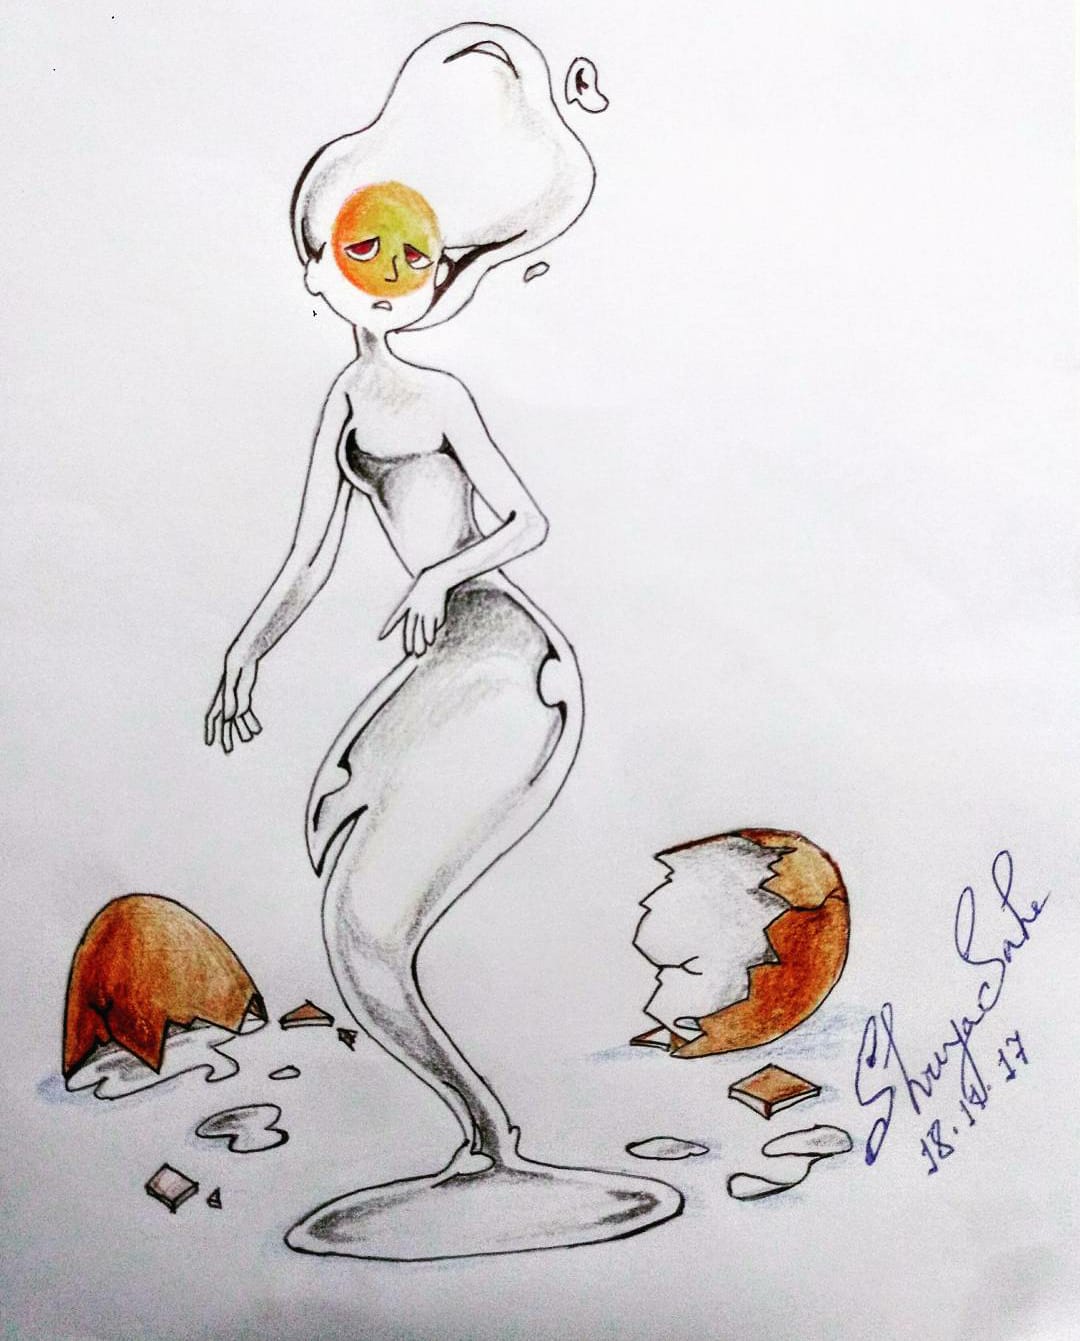 Shreya Sahe
18.12.17